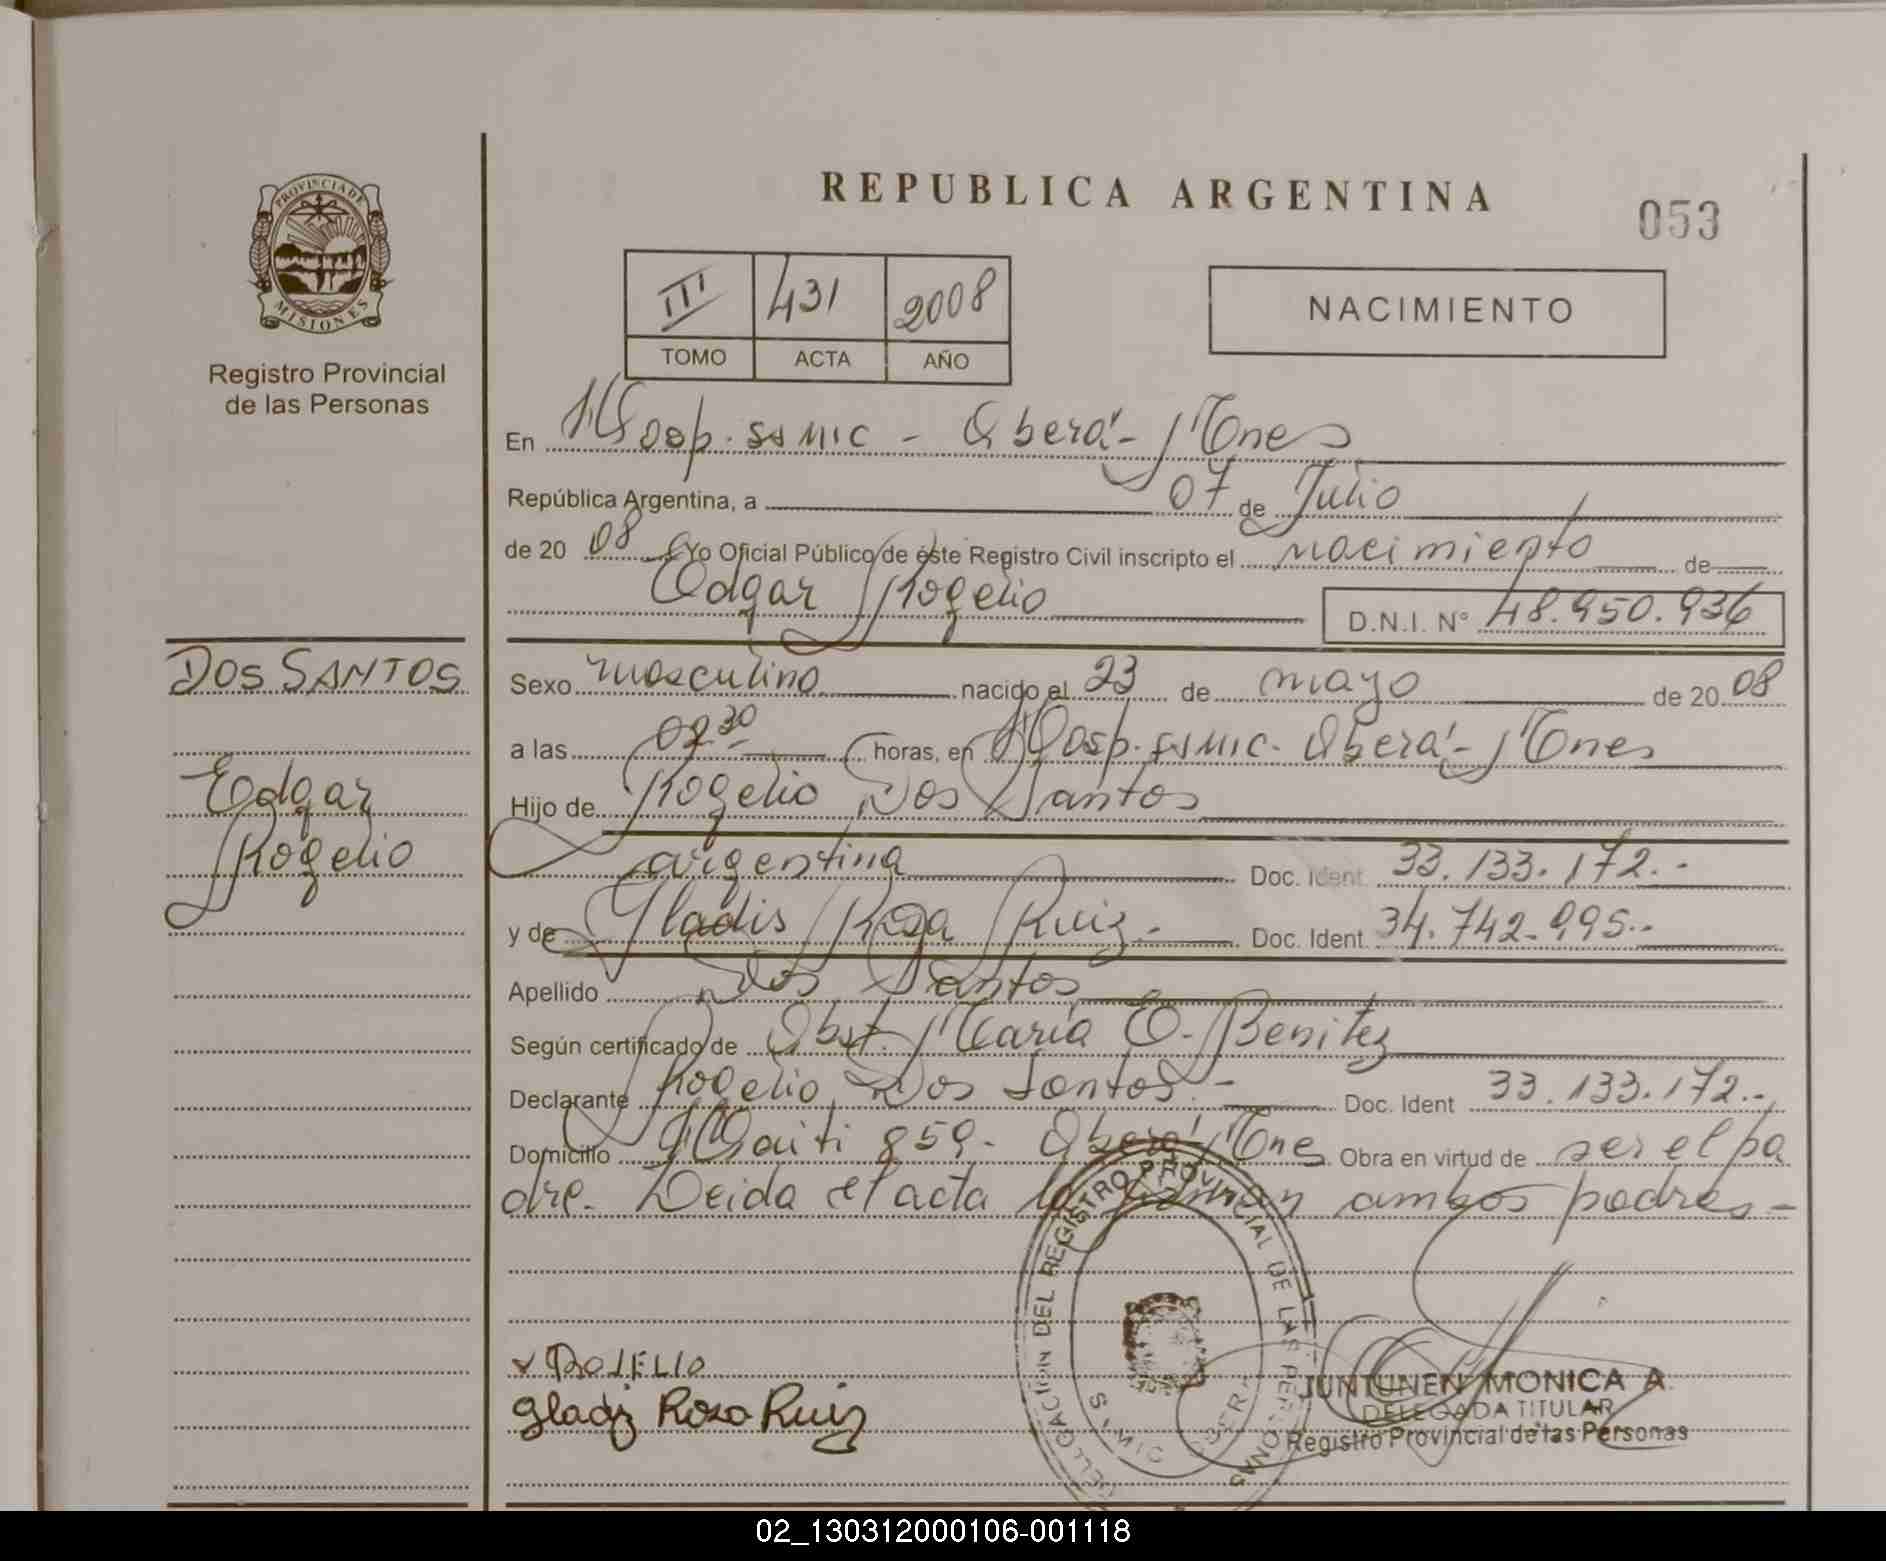 REPUBLICA ARGENTINA
053
PROVINCIA DE
MISIONES
Registro Provincial
de las Personas
III 431 2008
TOMO ACTA AÑO
NACIMIENTO
En Hosp. SAMIC - Oberá - Mnes
República Argentina, a 07 de Julio
de 20 08 Yo Oficial Público de éste Registro Civil inscripto el nacimiento de
Edgar Rogelio D.N.I. Nº 48.950.936
DOS SANTOS
Edgar
Rogelio
Sexo masculino nacido el 23 de mayo de 20 08
a las horas, en Hosp. SAMIC. Oberá - Mnes
Hijo de Rogelio Dos Santos
argentina Doc. Ident. 33.133.172.-
y de Gladis Rosa Ruiz.- Doc. Ident. 34.742.995.-
Apellido Dos Santos
Según certificado de Obst. María E. Benitez
Declarante Rogelio Dos Santos.- Doc. Ident 33.133.172.-
Domicilio Haiti 859- Oberá, Mnes Obra en virtud de ser el pa
dre. Leida el acta la firman ambos padres-
x ROJELIO
Gladiz Rosa Ruiz
DELEGACION DEL REGISTRO PROVINCIAL DE LAS PERSONAS
JUNTUNEN MONICA A.
DELEGADA TITULAR
Registro Provincial de las Personas
02_130312000106-001118